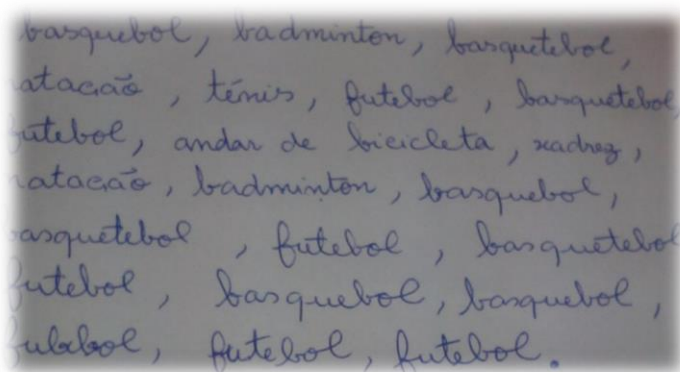 basquebol, badminton, basquetebol,
natação, ténis, futebol, basquetebol,
futebol, andar de bicicleta, xadrez,
natação, badminton, basquebol,
basquetebol, futebol, basquetebol
futebol, basquebol, basquebol,
futebol, futebol, futebol.